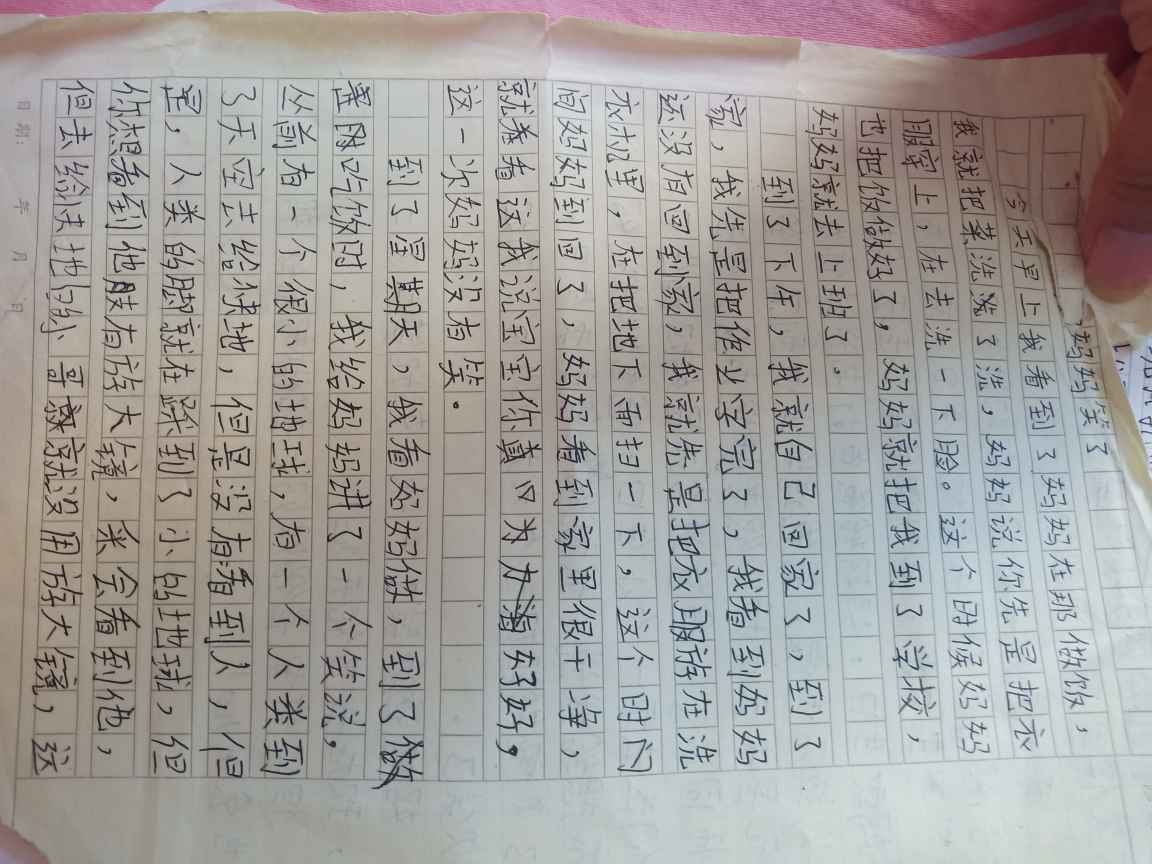 妈妈笑了
今天早上我看到了妈妈在那做饭，
我就把菜洗洗了洗，妈妈说你先是把衣
服穿上，在去洗一下脸。这个时候妈妈
也把饭做好了，妈妈就把我到了学校，
妈妈就去上班了。
到了下午，我就自己回家了，到了
家，我先是把作业字完了，我看到妈妈
还没有回到家，我就先是把衣服放在洗
衣机里，在把地下面扫一下。这个时门
间妈妈到回了，妈妈看到家里很干净，
就看着这我说宝宝你真 为 好好。
这一次妈妈没有笑。
到了星期天，我看妈妈做，到了做
是刚吃饭时，我给妈妈讲了一个笑说。
丛前有一个很小的地球，有一个人类到
了天空去给 地，但是没有看到人，但
是，人类的脚就在踩到了小的地球，但
你想看到他 有放大镜，采会看到他，
但去给 地的小哥 就没用放大镜，这
日期： 年 月 日